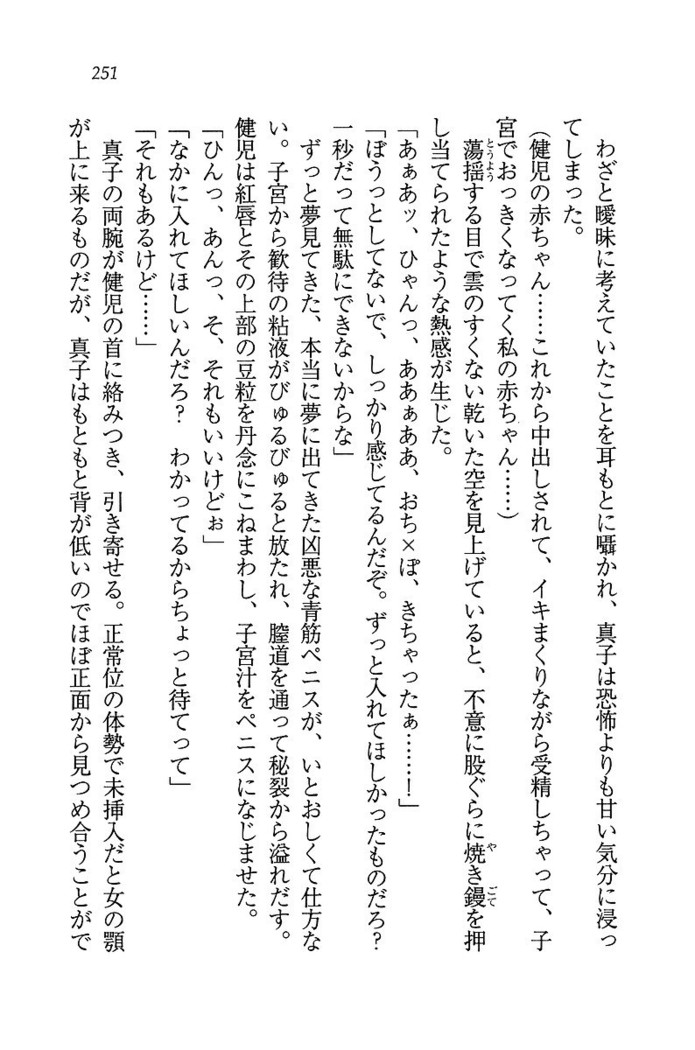 251
わざと曖昧に考えていたことを耳もとに囁かれ、真子は恐怖よりも甘い気分に浸っ
てしまった。
（健児の赤ちゃん……これから中出しされて、イキまくりながら受精しちゃって、子
宮でおっきくなってく私の赤ちゃん……）
蕩揺する目で雲のすくない乾いた空を見上げていると、不意に股ぐらに焼き鏝を押
し当てられたような熱感が生じた。
「あぁあッ、ひゃんっ、ああぁああ、おち×ぽ、きちゃったぁ……！」
「ぼうっとしてないで、しっかり感じてるんだぞ。ずっと入れてほしかったものだろ？
一秒だって無駄にできないからな」
ずっと夢見てきた、本当に夢に出てきた凶悪な青筋ペニスが、いとおしくて仕方な
い。子宮から歓待の粘液がびゅるびゅると放たれ、膣道を通って秘裂から溢れだす。
健児は紅唇とその上部の豆粒を丹念にこねまわし、子宮汁をペニスになじませた。
「ひんっ、あんっ、そ、それもいいけどぉ」
「なかに入れてほしいんだろ？　わかってるからちょっと待てって」
「それもあるけど……」
真子の両腕が健児の首に絡みつき、引き寄せる。正常位の体勢で未挿入だと女の顎
が上に来るものだが、真子はもともと背が低いのでほぼ正面から見つめ合うことがで